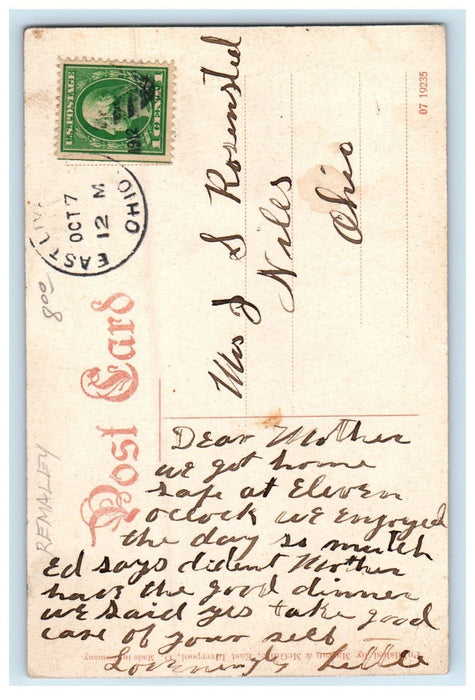 U.S. POSTAGE
1 CENT 1
EAST LIV
OCT 7
12 M
OHIO
07 19235
800
REMALEY
Post Card
Mrs J S Rosensteel
Niles
Ohio
Dear Mother
we got home
safe at Eleven
oclock we enjoyed
the day so mutch
Ed says dident Mother
have the good dinner
we said yes take good
care of your self
Loveningly Lettie
Published by & McG East Liverpool, O. Made in Germany